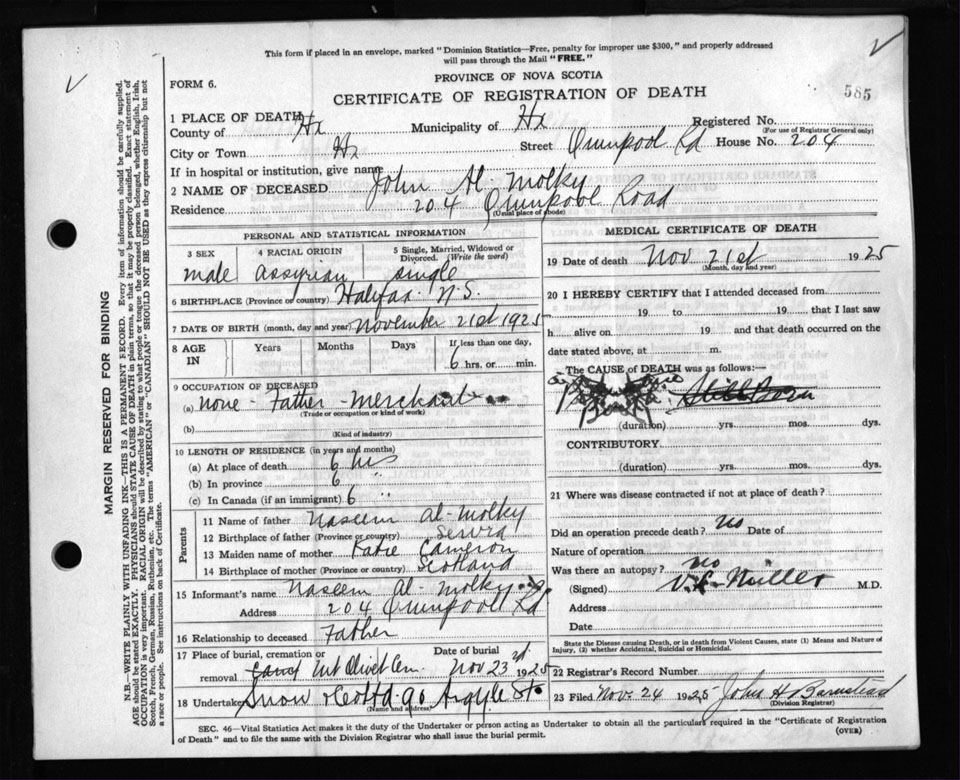 This form if placed in an envelope, marked "Dominion Statistics—Free, penalty for improper use $300," and properly addressed
will pass through the Mail "FREE."
PROVINCE OF NOVA SCOTIA
FORM 6.
CERTIFICATE OF REGISTRATION OF DEATH
585
1 PLACE OF DEATH
County of Hx Municipality of Hx Registered No.
(For use of Registrar General only)
City or Town Hx Street Quinpool Rd House No. 204
If in hospital or institution, give name
2 NAME OF DECEASED John Al Molky
Residence 204 Quinpool Road
(Usual place of abode)
PERSONAL AND STATISTICAL INFORMATION
3 SEX 4 RACIAL ORIGIN 5 Single, Married, Widowed or
Divorced. (Write the word)
male Assyrian single
6 BIRTHPLACE (Province or country) Halifax N.S.
7 DATE OF BIRTH (month, day and year) November 21st 1925
8 AGE IN Years Months Days If less than one day,
6 hrs. or min.
9 OCCUPATION OF DECEASED
(a) none - Father - merchant
(Trade or occupation or kind of work)
(b)
(Kind of industry)
10 LENGTH OF RESIDENCE (in years and months)
(a) At place of death 6 hrs
(b) In province 6 "
(c) In Canada (if an immigrant) 6 "
Parents
11 Name of father Naseem Al-Molky
12 Birthplace of father (Province or country)
13 Maiden name of mother Katie Cameron
14 Birthplace of mother (Province or country) Scotland
15 Informant's name Naseem Al Molky
Address 204 Quinpool Rd
16 Relationship to deceased Father
17 Place of burial, cremation or Date of burial
removal Mt Olivet Cem Nov 23rd 1925
18 Undertaker Snow & Co Ltd 90 Argyle St
(Name and address)
MEDICAL CERTIFICATE OF DEATH
19 Date of death Nov 21st 1925
(Month, day and year)
20 I HEREBY CERTIFY that I attended deceased from
19 to 19 that I last saw
h alive on 19 and that death occurred on the
date stated above, at m.
The CAUSE of DEATH was as follows:—
Still Born
(duration) yrs. mos. dys.
CONTRIBUTORY
(duration) yrs. mos. dys.
21 Where was disease contracted if not at place of death?
Did an operation precede death? no Date of
Nature of operation
Was there an autopsy? no
(Signed) Miller M.D.
Address
Date
State the Disease causing Death, or in death from Violent Causes, state (1) Means and Nature of
Injury, (2) whether Accidental, Suicidal or Homicidal.
22 Registrar's Record Number
23 Filed Nov. 24 1925 John H Barnstead
(Division Registrar)
SEC. 46—Vital Statistics Act makes it the duty of the Undertaker or person acting as Undertaker to obtain all the particulars required in the "Certificate of Registration
of Death" and to file the same with the Division Registrar who shall issue the burial permit.
(OVER)
MARGIN RESERVED FOR BINDING
N.B.—WRITE PLAINLY WITH UNFADING INK—THIS IS A PERMANENT RECORD. Every item of information should be carefully supplied.
AGE should be stated EXACTLY. PHYSICIANS should STATE CAUSE OF DEATH in plain terms, so that it may be properly classified. Exact statement of
OCCUPATION is very important. RACIAL ORIGIN will be described by stating to what people or tongue the deceased person belonged, whether English, Irish,
Scotch, French, German, Russian, Ruthenian, etc. The terms "AMERICAN" or "CANADIAN" SHOULD NOT BE USED as they express citizenship but not
a race or people. See instructions on back of Certificate.